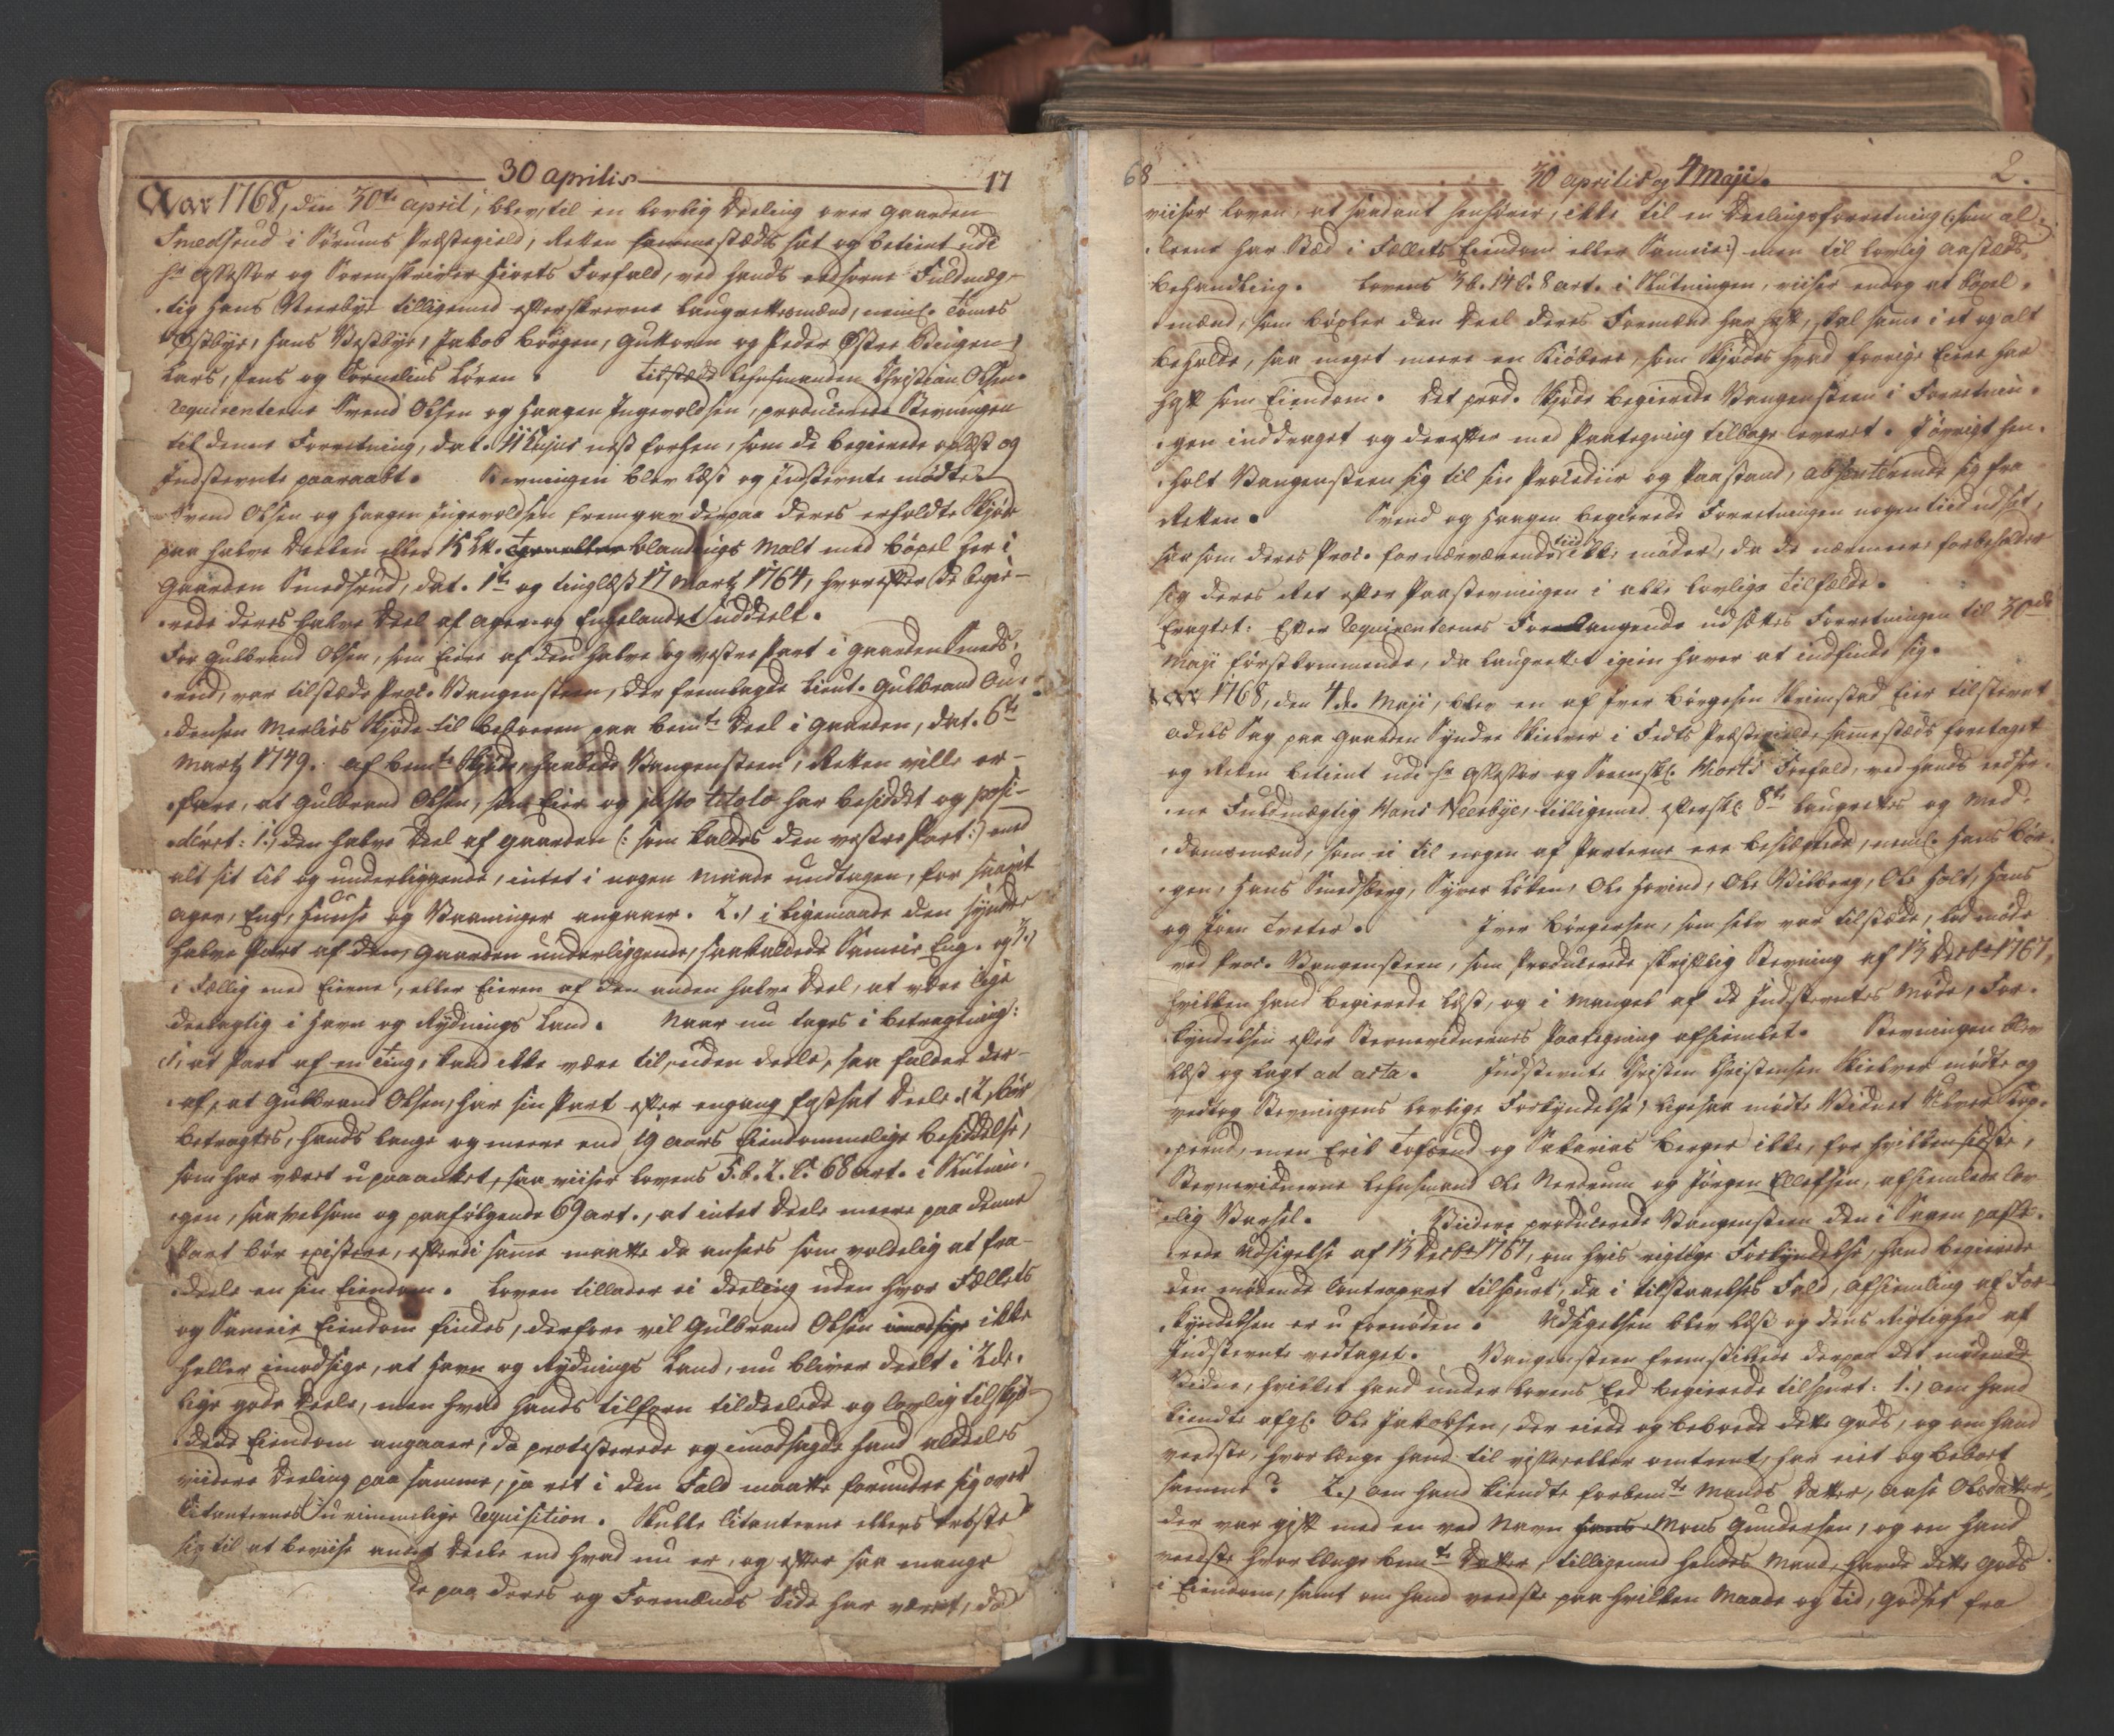 30 aprilis 17
Aar 1768, den 30te april, blev til en lovlig Deeling over gaarden
Smedsrud i Sørums Præstegield, Retten sammestæds sat og betient udi
Hr Assessor og Sorenskriver Hiorts Forfald, ved hands eedsorne Fuldmæg-
tig Hans Neerbye tilligemed efterskrevne Laugrettesmænd, neml. Tomes
Østbye, Hans Vestbye, Jakob Børgen, Guttorm og Peder Østre Bingen,
Lars, Jens og Cornelius Løren. tilstæde Lehnsmanden Christian Olsen.
Requirenterne Svend Olsen og Haagen Ingevoldsen, producerede Stevningen
til denne Forretning, dat. 11 hujus nest forhen, som de begierede oplæst og
Indstevnte paaraabt. Stevningen blev læst og Indstevnte mødte.
Svend Olsen og Haagen Ingevoldsen fremgav derpaa deres erholdte Skjøde
paa halve Deelen eller 15 Lpd. blandings Malt med bøxel her i
gaarden Smedsrud, dat. 1te og tinglæst 17 Martz 1764, hvorefter de begie-
rede deres halve Deel af ager- og Engelandet uddeelt.
For Gulbrand Olsen, som Eier af den halve og vestre Part i gaarden Smeds-
rud, var tilstæde Proc. Vangensteen, der fremlagde Lieut. Gulbrand Au-
densen Merlies Skjøde til beboeren paa bemte Deel i gaarden, dat. 6te
Martz 1749. af bemte Skjøde, haabede Vangensteen, Retten ville er-
fare, at Gulbrand Olsen, som Eier og justo titolo har besiddet og posi-
deret: 1.) den halve Deel af gaarden (: som kaldes den vestre Part :) med
alt sit til og underliggende, intet i nogen Maade undtagen, for saavit
ager, Eng, Huuse og Vaaninger angaaer. 2.) i ligemaade den syndre
halve Part af den, gaarden underliggende, saakaldede Sameie Eng. og 3.)
i Fællig med Eierne, eller Eieren af den anden halve Deel, at være lige
deelagtig i Havn og Rydnings Land. Naar nu tages i betragtning:
1, at Part af en Ting, kand ikke være til, uden deele, saa falder der-
af, at Gulbrand Olsen, har sin Part efter engang fastsat Deele. (2, bør
betragtes, hands lange og meere end 19 aars Eiendommelige besiddelse,
som har været upaaanket, saa viiser Lovens 5.b. 2.C. 68 art. i Slutnin-
gen, saavelsom og paafølgende 69 art., at intet Deele meere paa denne
Part bør existere, efterdi samme maatte da ansees som voldelig at fra-
deele en sin Eiendom. Loven tillader ei deeling uden hvor Fælles
og Sameie Eiendom findes, derfore vil Gulbrand Olsen imodsige ikke
heller imodsige, at Havn og Rydnings Land, nu bliver deelt i 2de
lige gode Deele, men hvad hands tilforn tildeelede og lovlig tilskjø-
dede Eiendom angaaer, da protesterede og imodsagde hand aldeeles
viidere Deeling paa samme, ja ret i den Fald maatte forundre sig over
Citanternes urimmelige Requisition. Skulle Citanterne ellers trøste
sig til at beviise andet Deele end hvad nu er, og efter saa mange
de paa deres og Formænds Side har været, da
68 30 aprilis og 4 Maji. 2.
viiser Loven, at saadant henhører, ikke til en Deelingsforretning (: som al-
leene har Sted i Fællets Eiendom eller Sameie :) men til lovlig aasteds
behandling. Lovens 3b. 14C. 8 art. i Slutningen, viiser endog at bøxel-
mænd, som bøxler den Deel deres Formænd har haft, skal samme i et og alt
beholde, saa meget meere en Kiøbere, som Skjødes hvad forrige Eiere har
haft som Eiendom. Det prod. Skjøde begierede Vangensteen i Forretnin-
gen inddraget og derefter med Paategning tilbage leveret. I øvrigt hen-
holt Vangensteen sig til sin Procedur og Paastand, absenterende sig fra
Retten. Svend og Haagen begierede Forretningen nogen tiid udsat,
saasom deres Proc. for nærværende tiid ikke møder, da de nærmere forbeholder
sig deres Ret efter Paastevningen i alle lovlige Tilfælde.
Eragtet: Efter Requirenternes Forlangende udsættes Forretningen til 30de
Maji førstkommende, da Laugrettet igien haver at indfinde sig.
Aar 1768, den 4de Maji, blev en af Iver Børgesen Krimstad Eier tilstevnt
odels Sag paa gaarden Syndre Kielver i Fedts Præstegield, sammestæds foretaget
og Retten betient udi Hr Assessor og Sorenskr. Hiorts Forfald, ved hands eedsor-
ne Fuldmægtig Hans Neerbye, tilligemed efterskr. 8te Laugrettes og Med-
domsmænd, som ei til nogen af Parterne ere besvogrede, neml. Hans Bør-
gen, Hans Smedsberg, Syver Løken, Ole Hovind, Ole Vilberg, Ole Holt, Hans
og Joen Tveter. Iver Børgersen, som selv var tilstæde, lod møde
ved Proc. Vangensteen, som producerede skriftlig Stevning af 13 Decbr 1767,
hvilken hand begierede læst, og i Mangel af de Indstevntes Møde, For-
kyndelsen efter Stevnevidnernes Paategning afhiemlet. Stevningen blev
læst og lagt ad acta. Indstevnte Christen Christensen Kielver mødte og
vedtog Stevningens lovlige Forkyndelse, ligesaa mødte Vidnet Elver Kop-
perud, men Erik Tofsrud og Zakarias Berger ikke, for hvilken sidste,
Stevnevidnerne Lehnsmand Ole Nordrum og Jørgen Ellefsen, afhiemlede lov-
lig Varsel. Viidere producerede Vangensteen den i Sagen pass-
rede Udsigelse af 13 Decbr 1767, om hvis rigtige Forkyndelse, hand begierede
den mødende Contrapart tilspurt, da i tilstaaelses Fald, afhiemling af For-
kyndelsen er ufornøden. Udsigelsen blev læst og dens Rigtighed af
Indstevnte vedtaget. Vangensteen fremstillede derpaa det mødende
Vidne, hvilket hand under Lovens Eed begierede tilspurt: 1.) om hand
kiendte afg. Ole Jakobsen, der eiede og beboede dette gods, og om hand
veedste, hvor længe hand til visse, eller omtrent, har eiet og beboet
samme? 2.) om hand kiendte forbemte Mands Datter, Aase Olsdatter,
der var gift med en ved Navn Mons Gundersen, og om hand
veedste hvor længe bemte Datter, tilligemed hendes Mand, havde dette gods
i Eiendom, samt om hand veedste paa hvilken Maade og Tid, godset fra